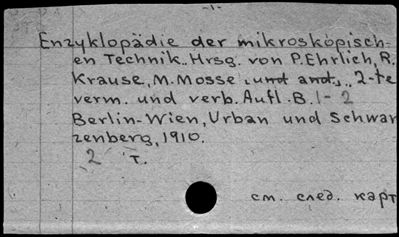 -1-
Enzyklopädie der mikroskopisch-
en Technik. Hrsg. von P. Ehrlich, R.
Krause, M. Mosse und and., 2-te
verm. und verb. Aufl. B. 1-2
Berlin-Wien, Urban und Schwar
zenberg, 1910.
2 т.
см. след. карт